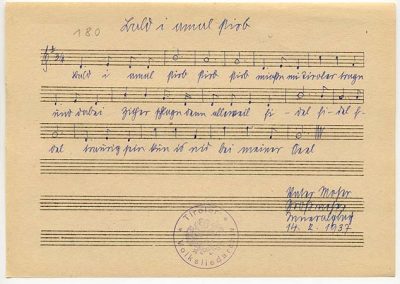 180
Bald i amal stirb
Bald i amal stirb stirb stirb müssen mi Tiroler tragn
und dabei Zither schlagn dann alleweil fi - del fi - del fi -
del traurig sein kun is nid bei meiner Seel
Peter Moser
14. 2. 1937
Tiroler Volksliedarchiv